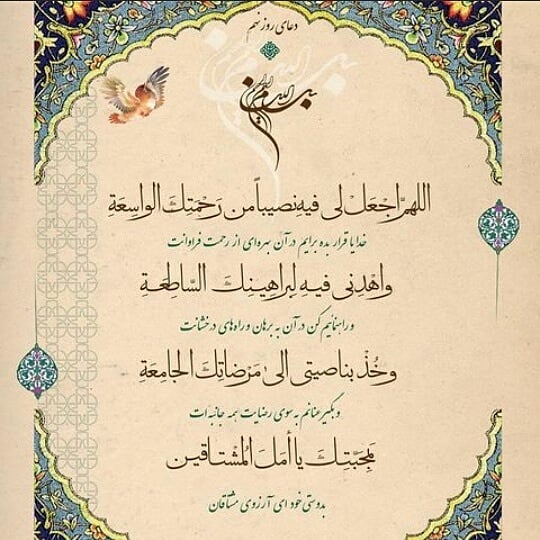 دعای روز نهم
بسم الله الرحمن الرحیم
اللهمّ اجْعَلْ لی فیهِ نصیباً من رَحمَتِكَ الواسِعَةِ
خدایا قرار بده برایم در آن بهره‌ای از رحمت فراوانت
واهْدِنی فیهِ لِبراهِینِكَ السّاطِعَةِ
و راهنماییم کن در آن به برهان و راه‌های درخشانت
وخُذْ بناصیتی الی مَرْضاتِكَ الجامِعَةِ
و بگیر عنانم به سوی رضایت همه جانبه ات
بِمَحَبّتِكَ یا أمَلَ المُشتاقین
بدوستی خود ای آرزوی مشتاقان